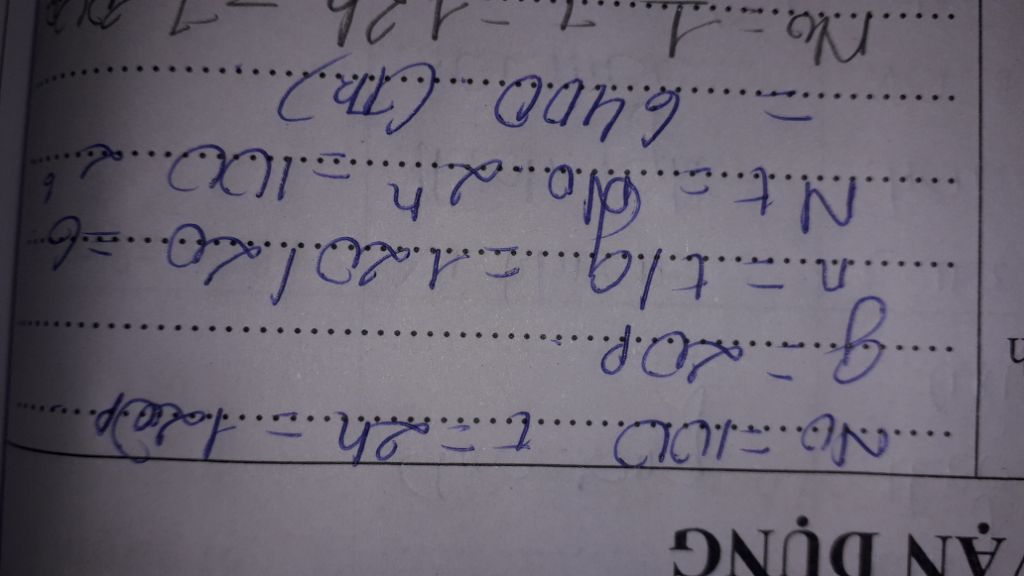 VẬN DỤNG
No = 100 t = 2h = 120p
g = 20p
n = t/g = 120/20 = 6
Nt = No 2ⁿ = 100 2⁶
= 6400 (TB)
No = 1